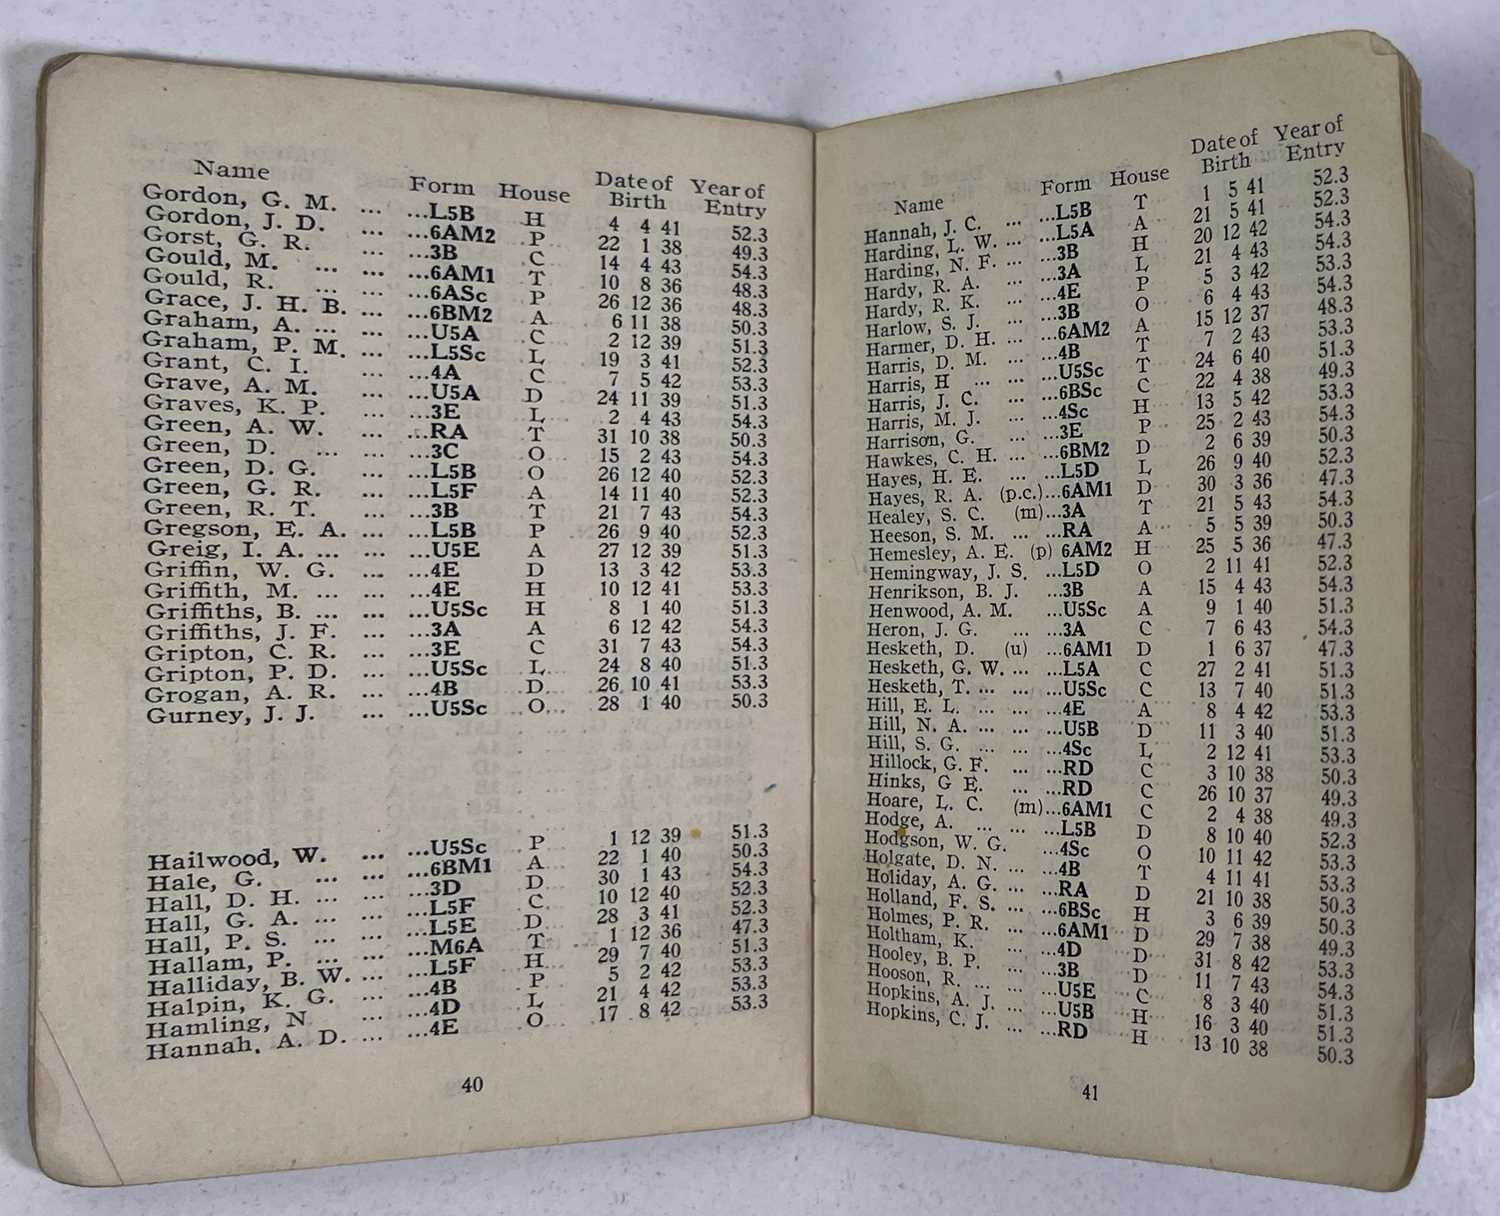 Name Form House Date of Birth Year of Entry
Gordon, G. M. ... ...L5B H 4 4 41 52.3
Gordon, J. D. ... ...6AM2 P 22 1 38 49.3
Gorst, G. R. ... ...3B C 14 4 43 54.3
Gould, M. ... ... ...6AM1 T 10 8 36 48.3
Gould, R. ... ... ...6ASc P 26 12 36 48.3
Grace, J. H. B. ... ...6BM2 A 6 11 38 50.3
Graham, A. ... ... ...U5A C 2 12 39 51.3
Graham, P. M. ... ...L5Sc L 19 3 41 52.3
Grant, C. I. ... ...4A C 7 5 42 53.3
Grave, A. M. ... ...U5A D 24 11 39 51.3
Graves, K. P. ... ...3E L 2 4 43 54.3
Green, A. W. ... ...RA T 31 10 38 50.3
Green, D. ... ... ...3C O 15 2 43 54.3
Green, D. G. ... ...L5B O 26 12 40 52.3
Green, G. R. ... ...L5F A 14 11 40 52.3
Green, R. T. ... ...3B T 21 7 43 54.3
Gregson, E. A. ... ...L5B P 26 9 40 52.3
Greig, I. A. ... ... ...U5E A 27 12 39 51.3
Griffin, W. G. ... ...4E D 13 3 42 53.3
Griffith, M. ... ... ...4E H 10 12 41 53.3
Griffiths, B. ... ... ...U5Sc H 8 1 40 51.3
Griffiths, J. F. ... ...3A A 6 12 42 54.3
Gripton, C. R. ... ...3E C 31 7 43 54.3
Gripton, P. D. ... ...U5Sc L 24 8 40 51.3
Grogan, A. R. ... ...4B D 26 10 41 53.3
Gurney, J. J. ... ...U5Sc O 28 1 40 50.3
Hailwood, W. ... ...U5Sc P 1 12 39 51.3
Hale, G. ... ... ...6BM1 A 22 1 40 50.3
Hall, D. H. ... ... ...3D D 30 1 43 54.3
Hall, G. A. ... ... ...L5F C 10 12 40 52.3
Hall, P. S. ... ... ...L5E D 28 3 41 52.3
Hallam, P. ... ... ...M6A T 1 12 36 47.3
Halliday, B. W. ... ...L5F H 29 7 40 51.3
Halpin, K. G. ... ...4B P 5 2 42 53.3
Hamling, N ... ...4D L 21 4 42 53.3
Hannah, A. D. ... ...4E O 17 8 42 53.3
40
Name Form House Date of Birth Year of Entry
Hannah, J. C. ... ...L5B T 1 5 41 52.3
Harding, L. W. ... ...L5A A 21 5 41 52.3
Harding, N. F. ... ...3B H 20 12 42 54.3
Hardy, R. A. ... ...3A L 21 4 43 54.3
Hardy, R. K. ... ...4E P 5 3 42 53.3
Harlow, S. J. ... ...3B O 6 4 43 54.3
Harmer, D. H. ... ...6AM2 A 15 12 37 48.3
Harris, D. M. ... ...4B T 7 2 43 53.3
Harris, H ... ... ...U5Sc T 24 6 40 51.3
Harris, J. C. ... ...6BSc C 22 4 38 49.3
Harris, M. J. ... ...4Sc H 13 5 42 53.3
Harrison, G. ... ...3E P 25 2 43 54.3
Hawkes, C. H. ... ...6BM2 D 2 6 39 50.3
Hayes, H. E. ... ...L5D L 26 9 40 52.3
Hayes, R. A. (p.c.)...6AM1 D 30 3 36 47.3
Healey, S. C. (m)...3A T 21 5 43 54.3
Heeson, S. M. ... ...RA A 5 5 39 50.3
Hemesley, A. E. (p) 6AM2 H 25 5 36 47.3
Hemingway, J. S. ...L5D O 2 11 41 52.3
Henrikson, B. J. ...3B A 15 4 43 54.3
Henwood, A. M. ...U5Sc A 9 1 40 51.3
Heron, J. G. ... ...3A C 7 6 43 54.3
Hesketh, D. (u) ...6AM1 D 1 6 37 47.3
Hesketh, G. W. ... ...L5A C 27 2 41 51.3
Hesketh, T. ... ... ...U5Sc C 13 7 40 51.3
Hill, E. L. ... ... ...4E A 8 4 42 53.3
Hill, N. A. ... ... ...U5B D 11 3 40 51.3
Hill, S. G. ... ... ...4Sc L 2 12 41 53.3
Hillock, G. F. ... ...RD C 3 10 38 50.3
Hinks, G E. ... ...RD C 26 10 37 49.3
Hoare, L. C. (m)...6AM1 C 2 4 38 49.3
Hodge, A. ... ... ...L5B D 8 10 40 52.3
Hodgson, W. G. ...4Sc O 10 11 42 53.3
Holgate, D. N. ... ...4B T 4 11 41 53.3
Holiday, A. G. ... ...RA D 21 10 38 50.3
Holland, F. S. ... ...6BSc H 3 6 39 50.3
Holmes, P. R. ... ...6AM1 D 29 7 38 49.3
Holtham, K. ... ...4D D 31 8 42 53.3
Hooley, B. P. ... ...3B D 11 7 43 54.3
Hooson, R. ... ... ...U5E C 8 3 40 51.3
Hopkins, A. J. ... ...U5B H 16 3 40 51.3
Hopkins, C. J. ... ...RD H 13 10 38 50.3
41